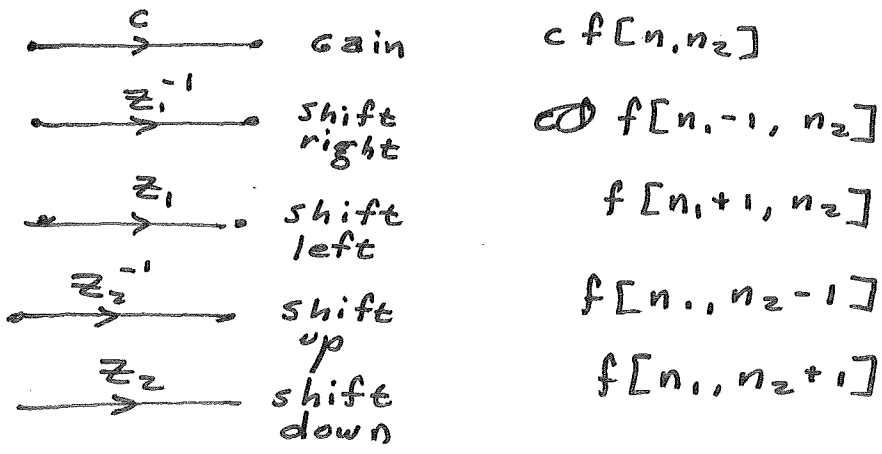 c gain c f[n₁n₂]
z₁⁻¹ shift right f[n₁-1, n₂]
z₁ shift left f[n₁+1, n₂]
z₂⁻¹ shift up f[n₁, n₂-1]
z₂ shift down f[n₁, n₂+1]